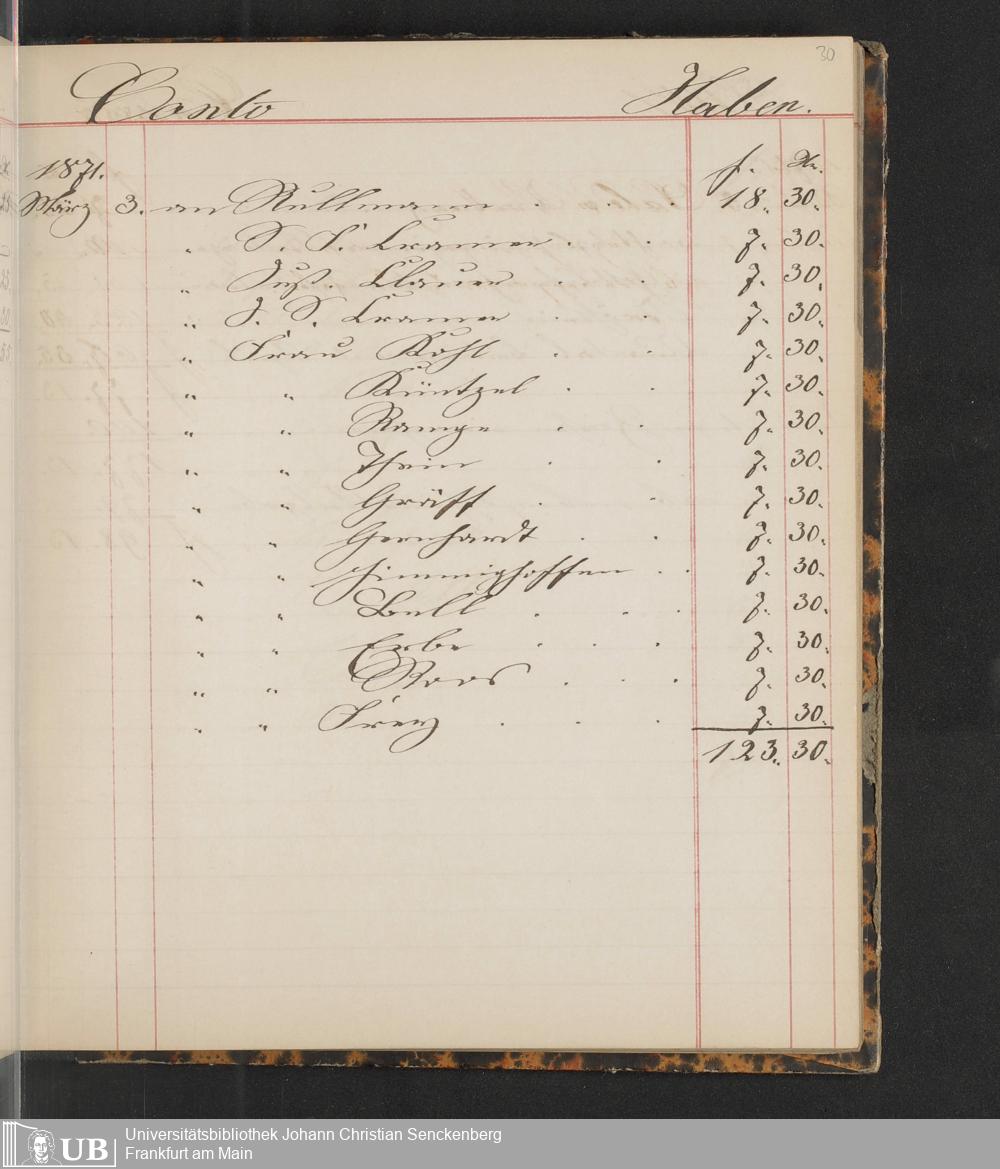 30
Conto Haben.
1871. f. Xr.
März 3. an Rullmann . . . 18. 30.
" S. F. Cramer . . 7. 30.
" Just. Clauer . . 7. 30.
" J. S. Cramer . . 7. 30.
" Frau Kohl . . 7. 30.
" " Küntzel . . 7. 30.
" " Rampe . . 7. 30.
" " Thein . . 7. 30.
" " Gräff . . 7. 30.
" " Gernhardt . . 7. 30.
" " Himmighoffen . . 7. 30.
" " Bell . . . 7. 30.
" " Erbe . . . 7. 30.
" " Roos . . . 7. 30.
" " Frey . . . 7. 30.
123. 30.
UB
Universitätsbibliothek Johann Christian Senckenberg
Frankfurt am Main